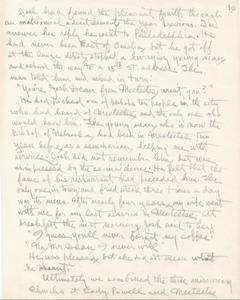 10
Josh had found the pleasant youth through
an matrimonial advertisement the year previous. In
answer her reply he went to Philadelphia. He
had never been East of Omaha, but he got off
at the large depot, stopped a hurrying young man
and asked the way to a 15th St. address. The
man told him and asked in turn:
"You're Josh Dean from Meeteetse aren't you?"
He had picked one of perhaps ten people in the city
who had heard of Meeteetse and the only one who
would know him. The young man, who is now the
Bishop of Nebraska, had been in Meeteetse two
years before as a seminarian, helping me with
services. Josh did not remember him, but was
impressed by the coincidence. He felt that the
fame of his restaurant had preceded him. It was the
only one in town, and fried steak three times a day
was its menu. After nearly four years, my wife went
with me for my last service in Meeteetse. At
breakfast the next morning Josh said to her:
"I guess you'll never forget my coffee!
"No, Mr. Dean I never will."
He was pleased but she did not mean what
he meant.
Ultimately we combined the three missionary
Churches at Cody, Powell and Meeteetse